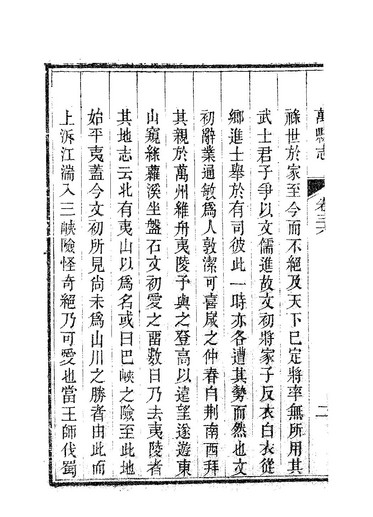 萬縣志
卷三六
二
祿世於家至今而不絕及天下已定將率無所用其
武士君子爭以文儒進故文初將家子反衣白衣從
鄉進士舉於有司彼此一時亦各遭其勢而然也文
初辭業通敏爲人敦潔可喜歲之仲春自荆南西拜
其親於萬州維舟夷陵予與之登高以遠望遂遊東
山窺綠蘿溪坐盤石文初愛之畱數日乃去夷陵者
其地志云北有夷山以爲名或曰巴峽之險至此地
始平夷蓋今文初所見尚未爲山川之勝者由此而
上泝江湍入三峽險怪奇絕乃可愛也當王師伐蜀